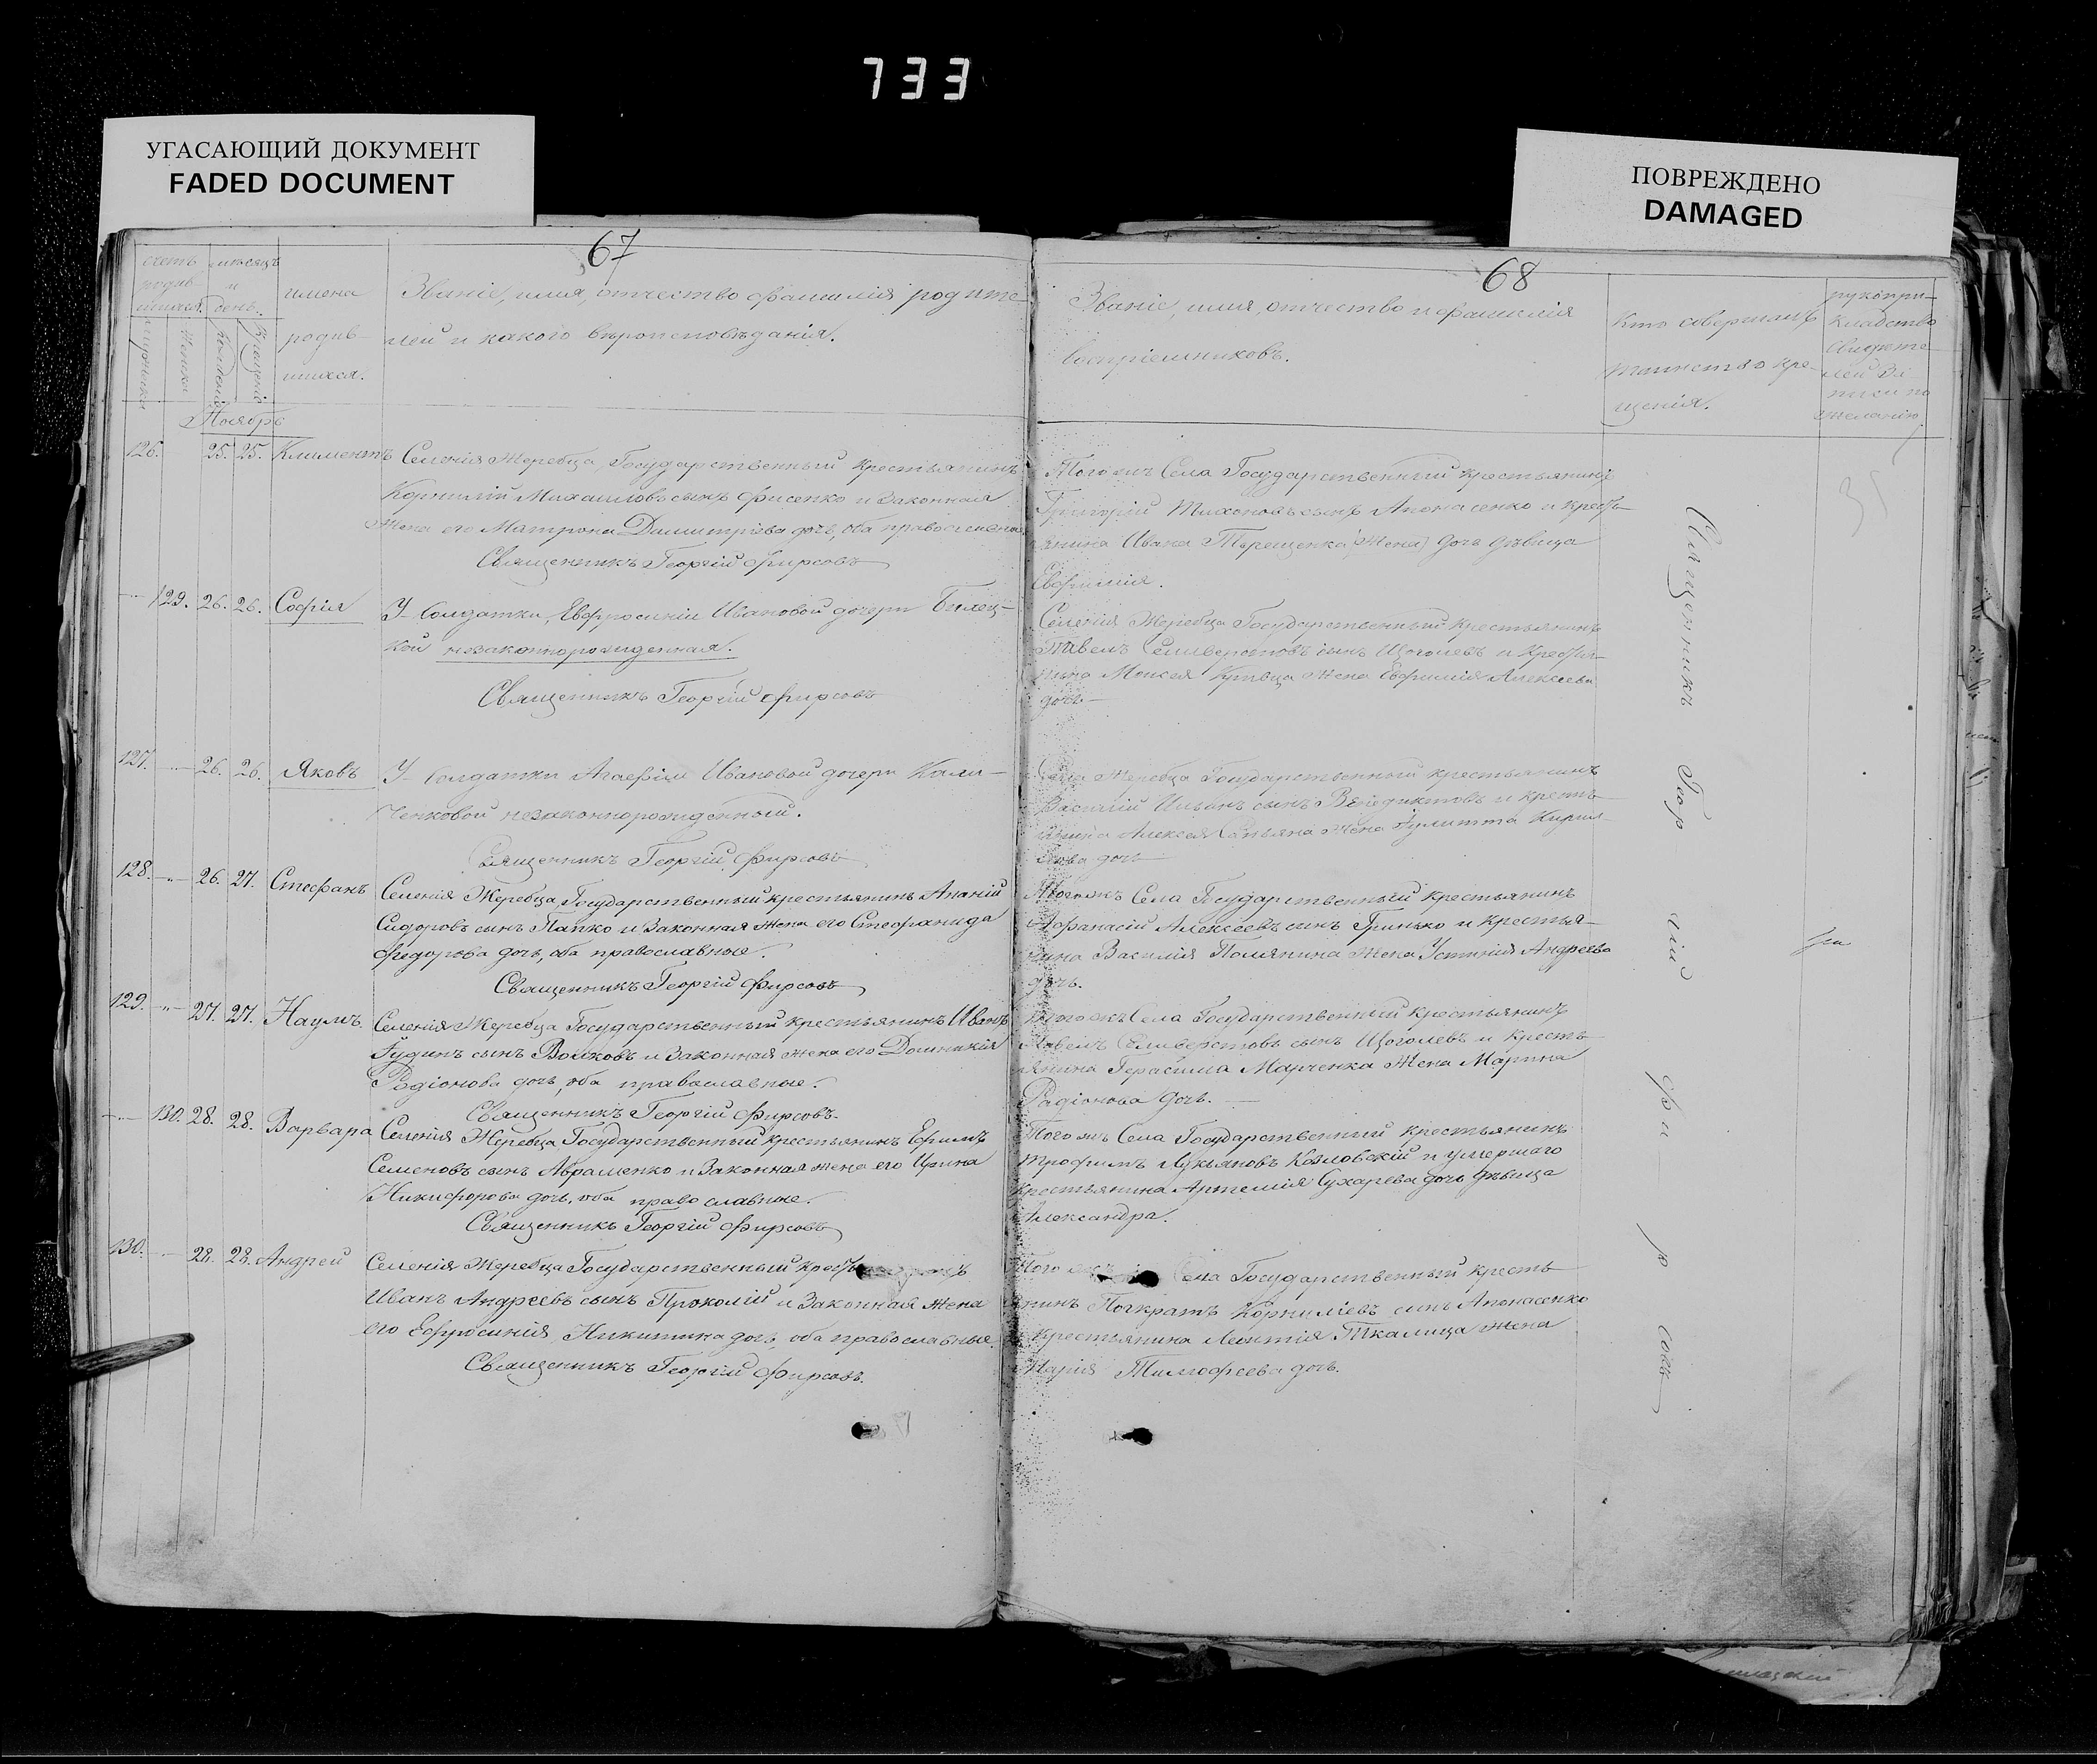 733
УГАСАЮЩИЙ ДОКУМЕНТ
FADED DOCUMENT
ПОВРЕЖДЕНО
DAMAGED
67
счетъ родив шихся.
мѣсяцъ и день.
имена родив- шихся.
Званіе, имя, отчество фамилія родите-
лей и какого вѣроисповѣданія.
Ноябрь
126. 25. 25. Климентъ
Селенія Жеребца, Государственный крестьянинъ
Корнилій Михаиловъ сынъ Фисенко и Законная
Жена его Матрона Димитріева дочь, оба православные
Священникъ Георгій Фирсовъ
129. 26. 26. Софія
У Солдатки, Евфросиніи Ивановой дочери Билец-
кой незаконнорожденная.
Священникъ Георгій Фирсовъ
127. 26. 26. Яковъ
У Солдатки Агафіи Ивановой дочери Кали-
ченковой незаконнорожденный.
Священникъ Георгій Фирсовъ
128. 26. 27. Стефанъ
Селенія Жеребца, Государственный крестьянинъ Ананій
Сидоровъ сынъ Папко и Законная Жена его Стефанида
Федорова дочь, оба православные.
Священникъ Георгій Фирсовъ
129. 27. 27. Наумъ.
Селенія Жеребца Государственный крестьянинъ Иванъ
сынъ Войковъ и Законная жена его Домникія
Радіонова дочь, оба православные.
Священникъ Георгій Фирсовъ.
130. 28. 28. Варвара
Селенія Жеребца, Государственный крестьянинъ Ефимъ
Семеновъ сынъ Авраменко и Законная жена его Ирина
Никифорова дочь, оба православные.
Священникъ Георгій Фирсовъ
130. 28. 28. Андрей
Селенія Жеребца Государственный
Иванъ Андреевъ сынъ и Законная Жена
его Ефросинія Никитина дочь, оба православные.
Священникъ Георгій Фирсовъ.
68
Званіе, имя, отчество и фамилія
воспріемниковъ.
Кто совершалъ
таинство кре-
щенія.
рукопри-
кладство
свидѣте-
лей
по
желанію
Тогожъ Села Государственный крестьянинъ
Григорій Тихоновъ сынъ Апонасенко и кресть-
янина Ивана Терещенка (Жена) дочь дѣвица
Евфимія.
Селенія Жеребца Государственный крестьянинъ
Павелъ Селиверстовъ сынъ Щоголевъ и Крестья-
нина Моисея Кривца Жена Евфимія Алексеева
дочь
Села Жеребца Государственный крестьянинъ
Василій Ильинъ сынъ и кресть-
янина Алексея жена Кирил-
лова дочь
Тогожъ Села Государственный крестьянинъ
Афанасій Алексеевъ сынъ Гринько и крестья-
нина Василія Полянина Жена Устинія Андреева
дочь.
Тогожъ Села Государственный крестьянинъ
Павелъ Селиверстовъ сынъ Щоголевъ и кресть-
янина Герасима Марченка Жена Марина
Радіонова дочь.
Тогожъ Села Государственный крестьянинъ
Трофимъ Лукьяновъ Козловскій и умершаго
крестьянина Артемія Сухарева дочь дѣвица
Александра.
Того Села Государственный кресть-
янинъ Корниліевъ сынъ Апонасенко
и Крестьянина Леонтія Ткалича Жена
Марія Тимофеева дочь.
Священникъ Геор гій Фи р совъ